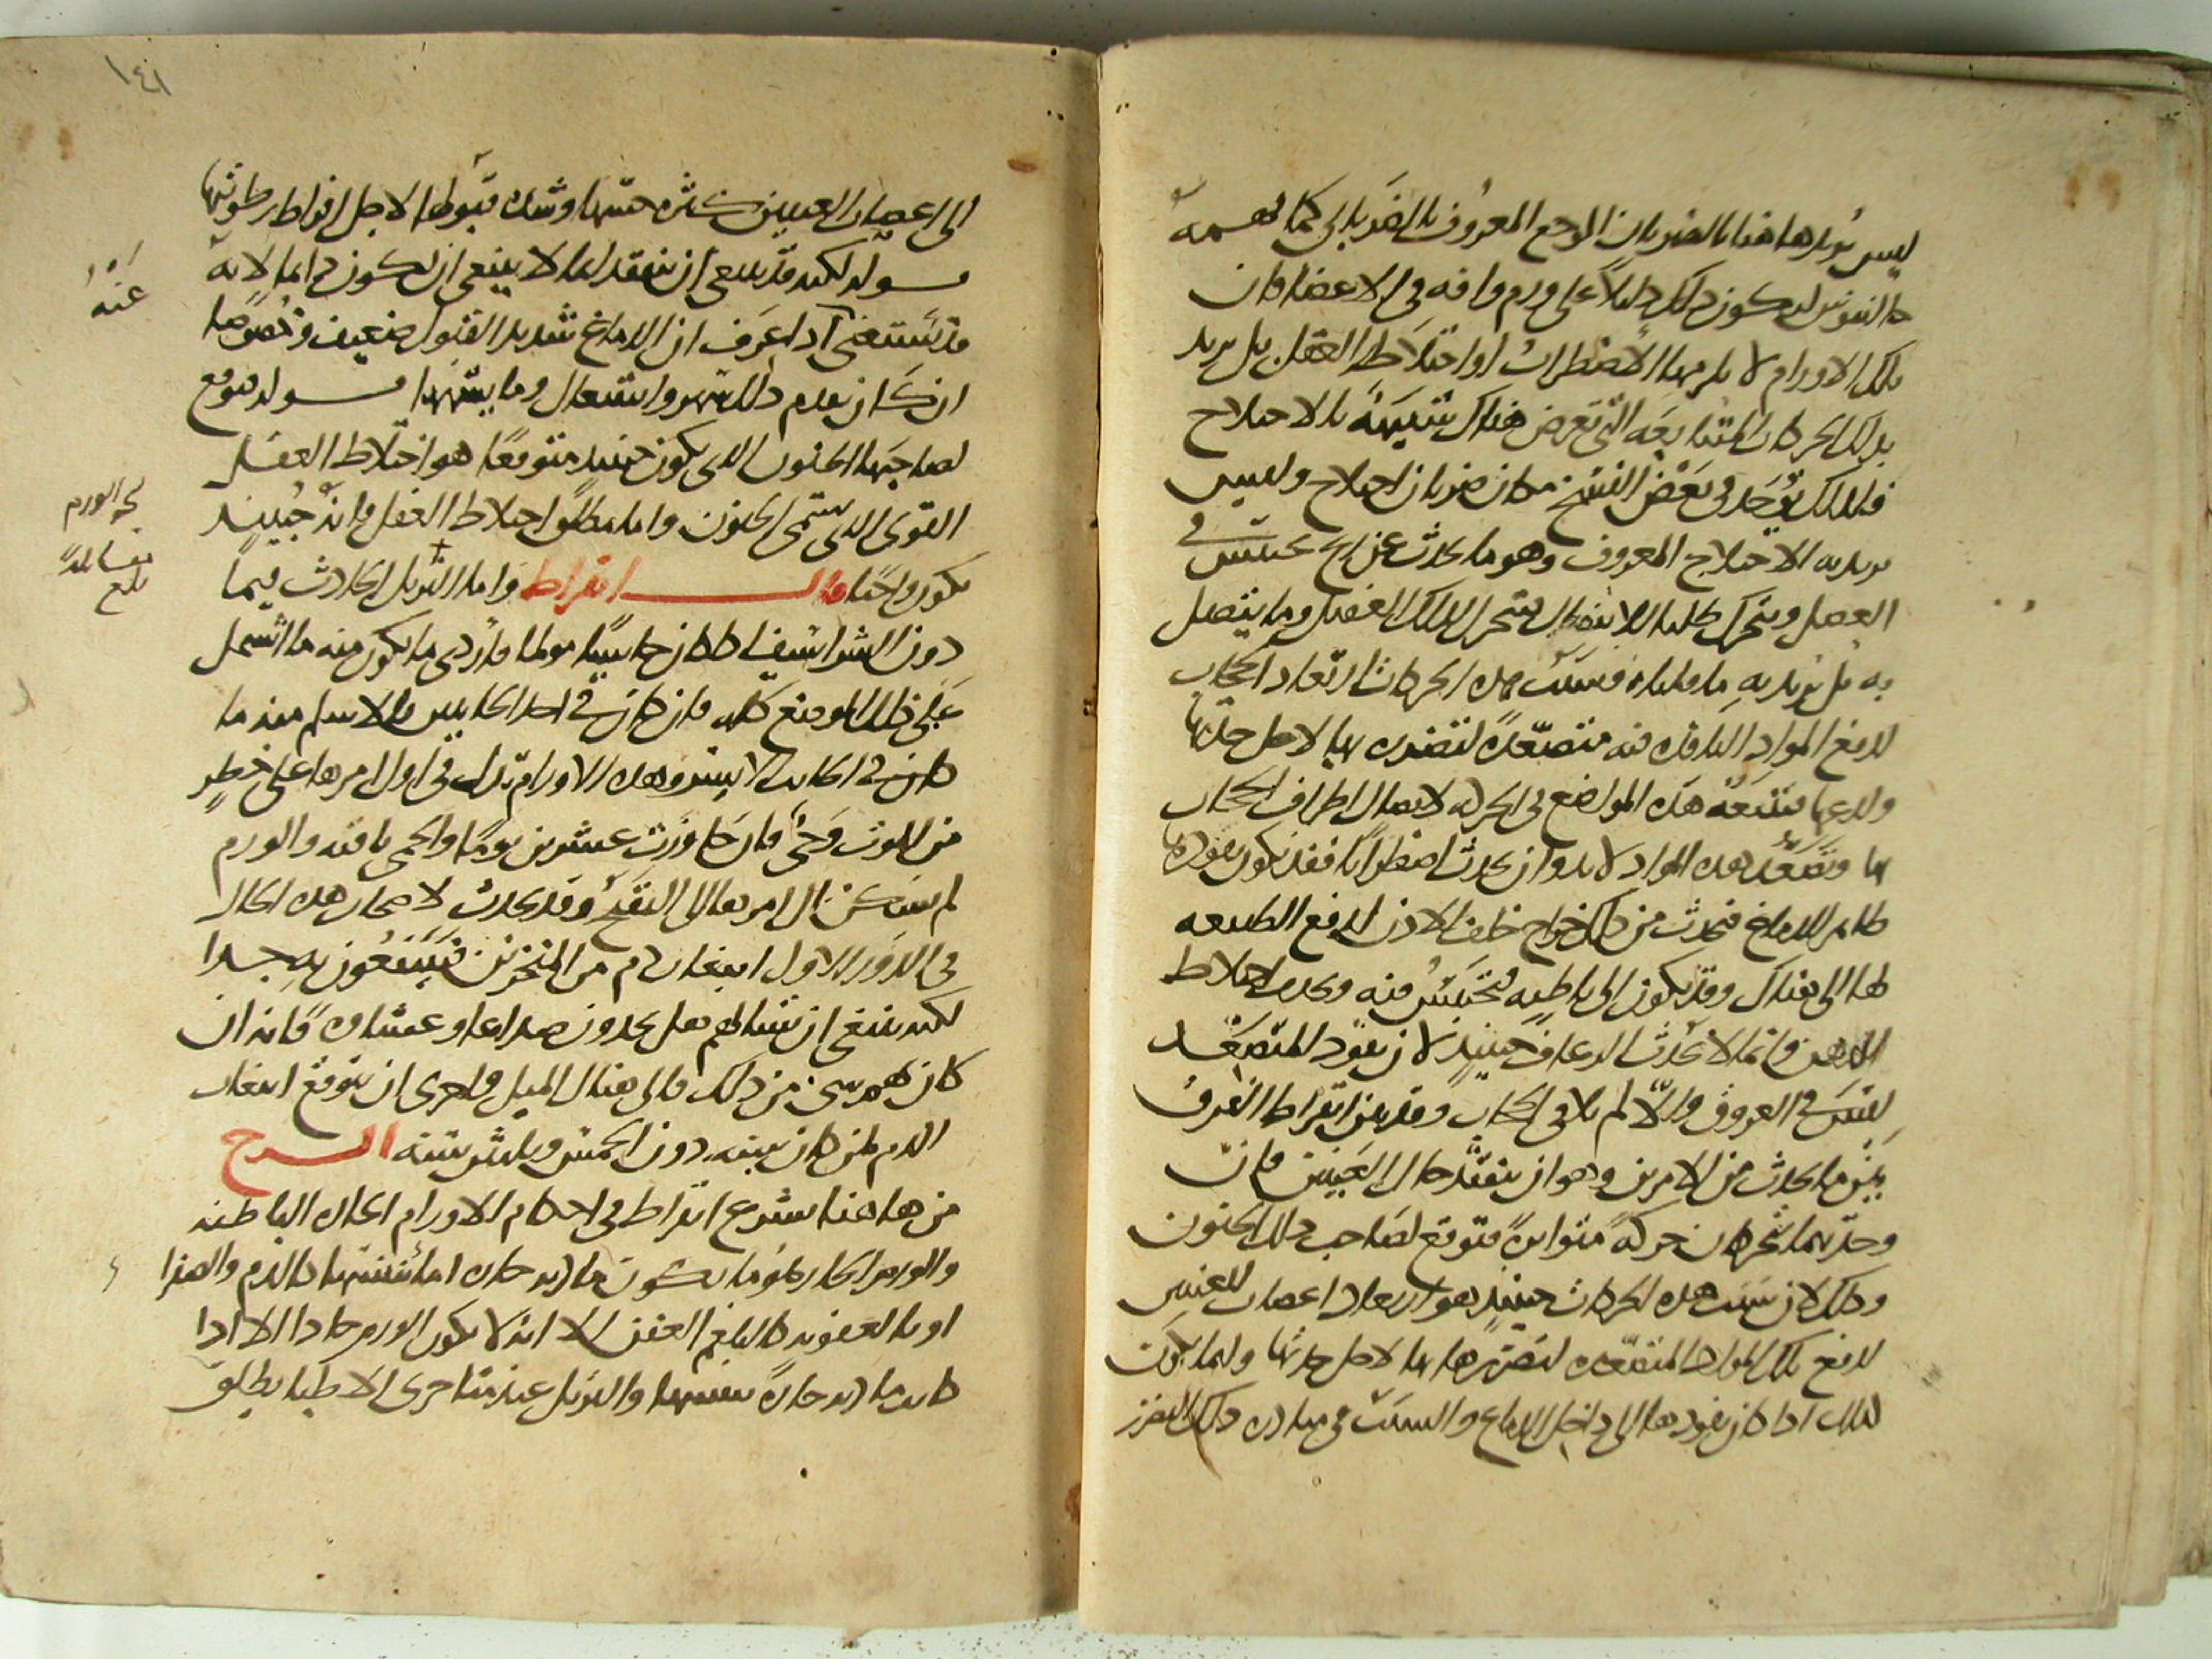 ليس يريد هاهنا بالضربان الوجع المعروف بالضربان كما يفهمه
جالينوس ليكون ذلك دليلا على ورم وافه في الاعضا فان
تلك الاورام لا يلزمها الاضطراب او اختلاط العقل بل يريد
بذلك الحركات المتتابعه التي تعرض هناك شبيهة بالاختلاج
فلذلك يوجد في بعض النسخ مكان ضربان اختلاج وليس
يريد به الاختلاج المعروف وهو ما يحدث عن ريح تحتبس في
العضل ويتحرك طلبا للانفصال فيتحرك لذلك العضل وما يتصل
به بل يريد به ما قلناه فسبب هذه الحركات ارتعاد الحجاب
لدفع المواد النافذه فيه متصعدة لتضرره بها لاجل حدتها
ولدعها فتتبعه هذه المواضع في الحركه لاتصال اطراف الحجاب
بها وتصعد هذه المواد لابد وان يحدث اضطرابا فقد يكون نفوذها
ظاهر الدماغ فيحدث من ذلك خراج خلف الاذن لدفع الطبيعه
لها الى هناك وقد يكون الى باطنه فتحتبس فيه ويحدث اختلاط
الذهن وانما لا يحدث الرعاف حينئذ لان نفوذ المتصعد
ليس في العروق والا لم يلاقي الحجاب وقد بين ابقراط الفرق
بين ما يحدث من الامرين وهو ان يتفقد حال العينين فان
وجدتهما تتحركان حركة متواترة فتوقع لصاحب ذلك الجنون
وذلك لان سبب هذه الحركات حينئذ هو ارتعاد اعصاب العينين
لدفع تلك المواد المتصعده لتضررها بها لاجل حدتها وانما يكون
كذلك اذا كان نفوذها الى داخل الدماغ والسبب في مبادرة ذلك الضرر
١٤١
الى اعصاب العينين كثرة حسها وشدة قبولها لاجل افراط رطوبتها
قوله لكنه قد ينبغي ان تتفقد انما لا ينبغي ان يكون دايما لانه
قد يستغنى اذا عرف ان الدماغ شديد القبول ضعيف وخصوصا
ان كان تقدم ذلك سهر واشتعال وما يشبهها قوله فتوقع
لصاحبها الجنون الذي يكون حينئذ متوقعا هو اختلاط العقل
القوي الذي يسمى الجنون واما مطلق اختلاط العقل فانه حينئذ
يكون واجبا قال ابقراط واما التربل الحادث فيما
دون الشراسيف اذا كان جاسيا مولما فاردى ما يكون منه ما اشتمل
على ذلك الموضع كله فان كان في احد الجانبين فالاسلم منه ما
كان في الجانب الايسر وهذه الاورام تدل في اول امرها على خطر
من الموت وحي فان جاوزت عشرين يوما والحمى باقية والورم
لم يسكن آل امرها الى التقيح وقد يحدث لاصحاب هذه الحال
في الدور الاول انبعاث دم من المنخرين فينتفعون به جدا
لكنه ينبغي ان تسالهم هل يجدون صداعا او غشاوة فانه ان
كان بهم شي من ذلك فالى هناك الميل واحرى ان يتوقع انبعاث
الدم لمن كان سنه دون الخمس وثلثين سنه الشرح
من هاهنا يشرع ابقراط في احكام الاورام الحاره الباطنه
والورم الحار هو ما يكون مادته حاره اما بنفسها كالدم والصفرا
او بالعفونه كالبلغم العفن الا انه لا يكون الورم حادا الا اذا
كانت مادته حارة بنفسها والتربل عند متاخري الاطبا يطلق
عنه
نحو الورم
بلغ